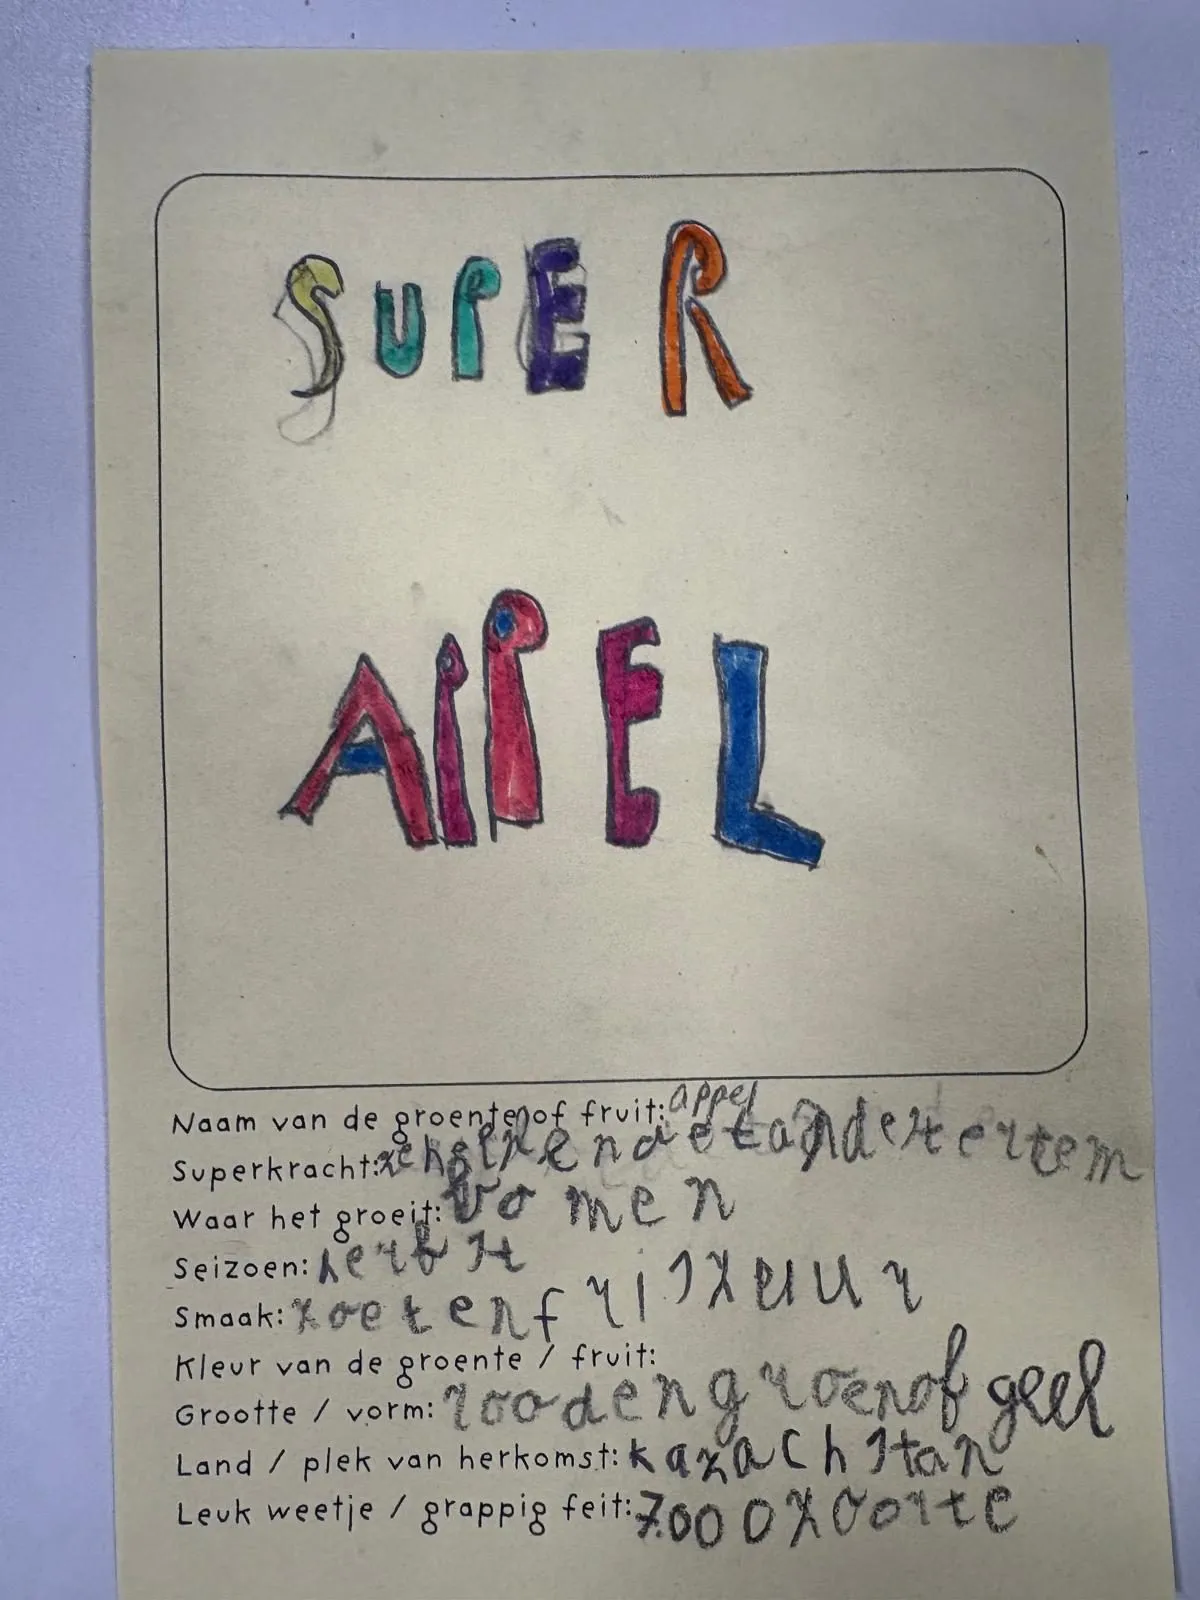 SUPER
APPEL
Naam van de groente of fruit: appel
Superkracht:
Waar het groeit: bomen
Seizoen: herfst
Smaak: zoet en friszuur
Kleur van de groente / fruit:
Grootte / vorm: rood en groen of geel
Land / plek van herkomst: kazachstan
Leuk weetje / grappig feit: 7000 zoorte